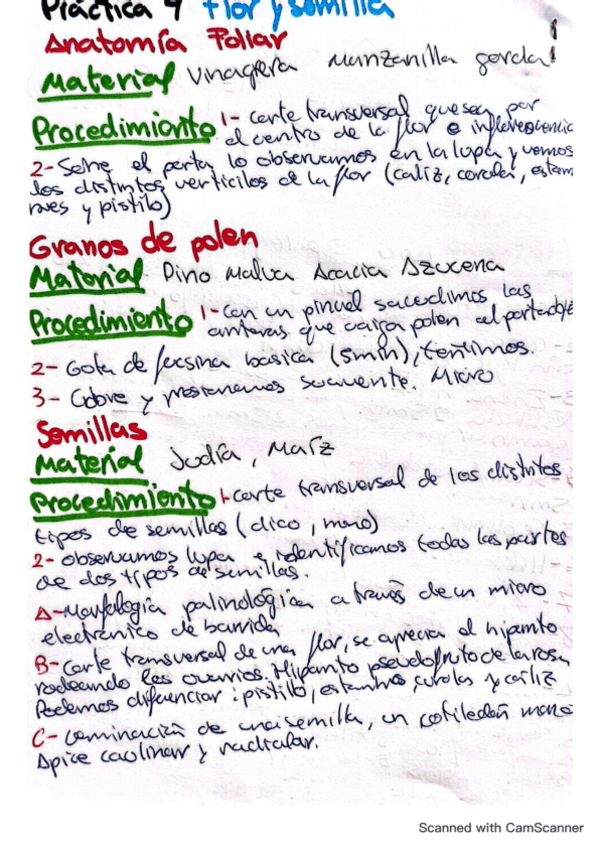 Práctica 9 Flor y semilla
Anatomía Foliar
Material Vinagrera Manzanilla gorda!
Procedimiento 1- corte transversal que sea por
el centro de la flor e inflorescencia
2- Sobre el porta lo observamos en la lupa y vemos
los distintos verticilos de la flor (caliz, corola, estam
bres y pistilo)
Granos de polen
Material Pino Malva Acacia Azucena
Procedimiento 1- Con un pincel sacudimos las
anteras que caiga polen al portaobje
2- Gota de fucsina basica (5min), teñimos.
3- Cobre y presionamos suavente. Micro
Semillas
Material Judía, Maíz
Procedimiento 1- corte transversal de los distintos
tipos de semillas (dico, mono)
2- observamos lupa e identificamos todas las partes
de dos tipos de semillas.
A- Morfología palinológica a través de un micro
electrónico de barrido
B- Corte transversal de una flor, se aprecia el hipanto
rodeando los ovarios. Hipanto pseudofruto de la rosa
Podemos diferenciar: pistilo, estambres corolas y cáliz
C- Germinación de una semilla, un cotiledón mono
Apice caulinar y radicular.
Scanned with CamScanner